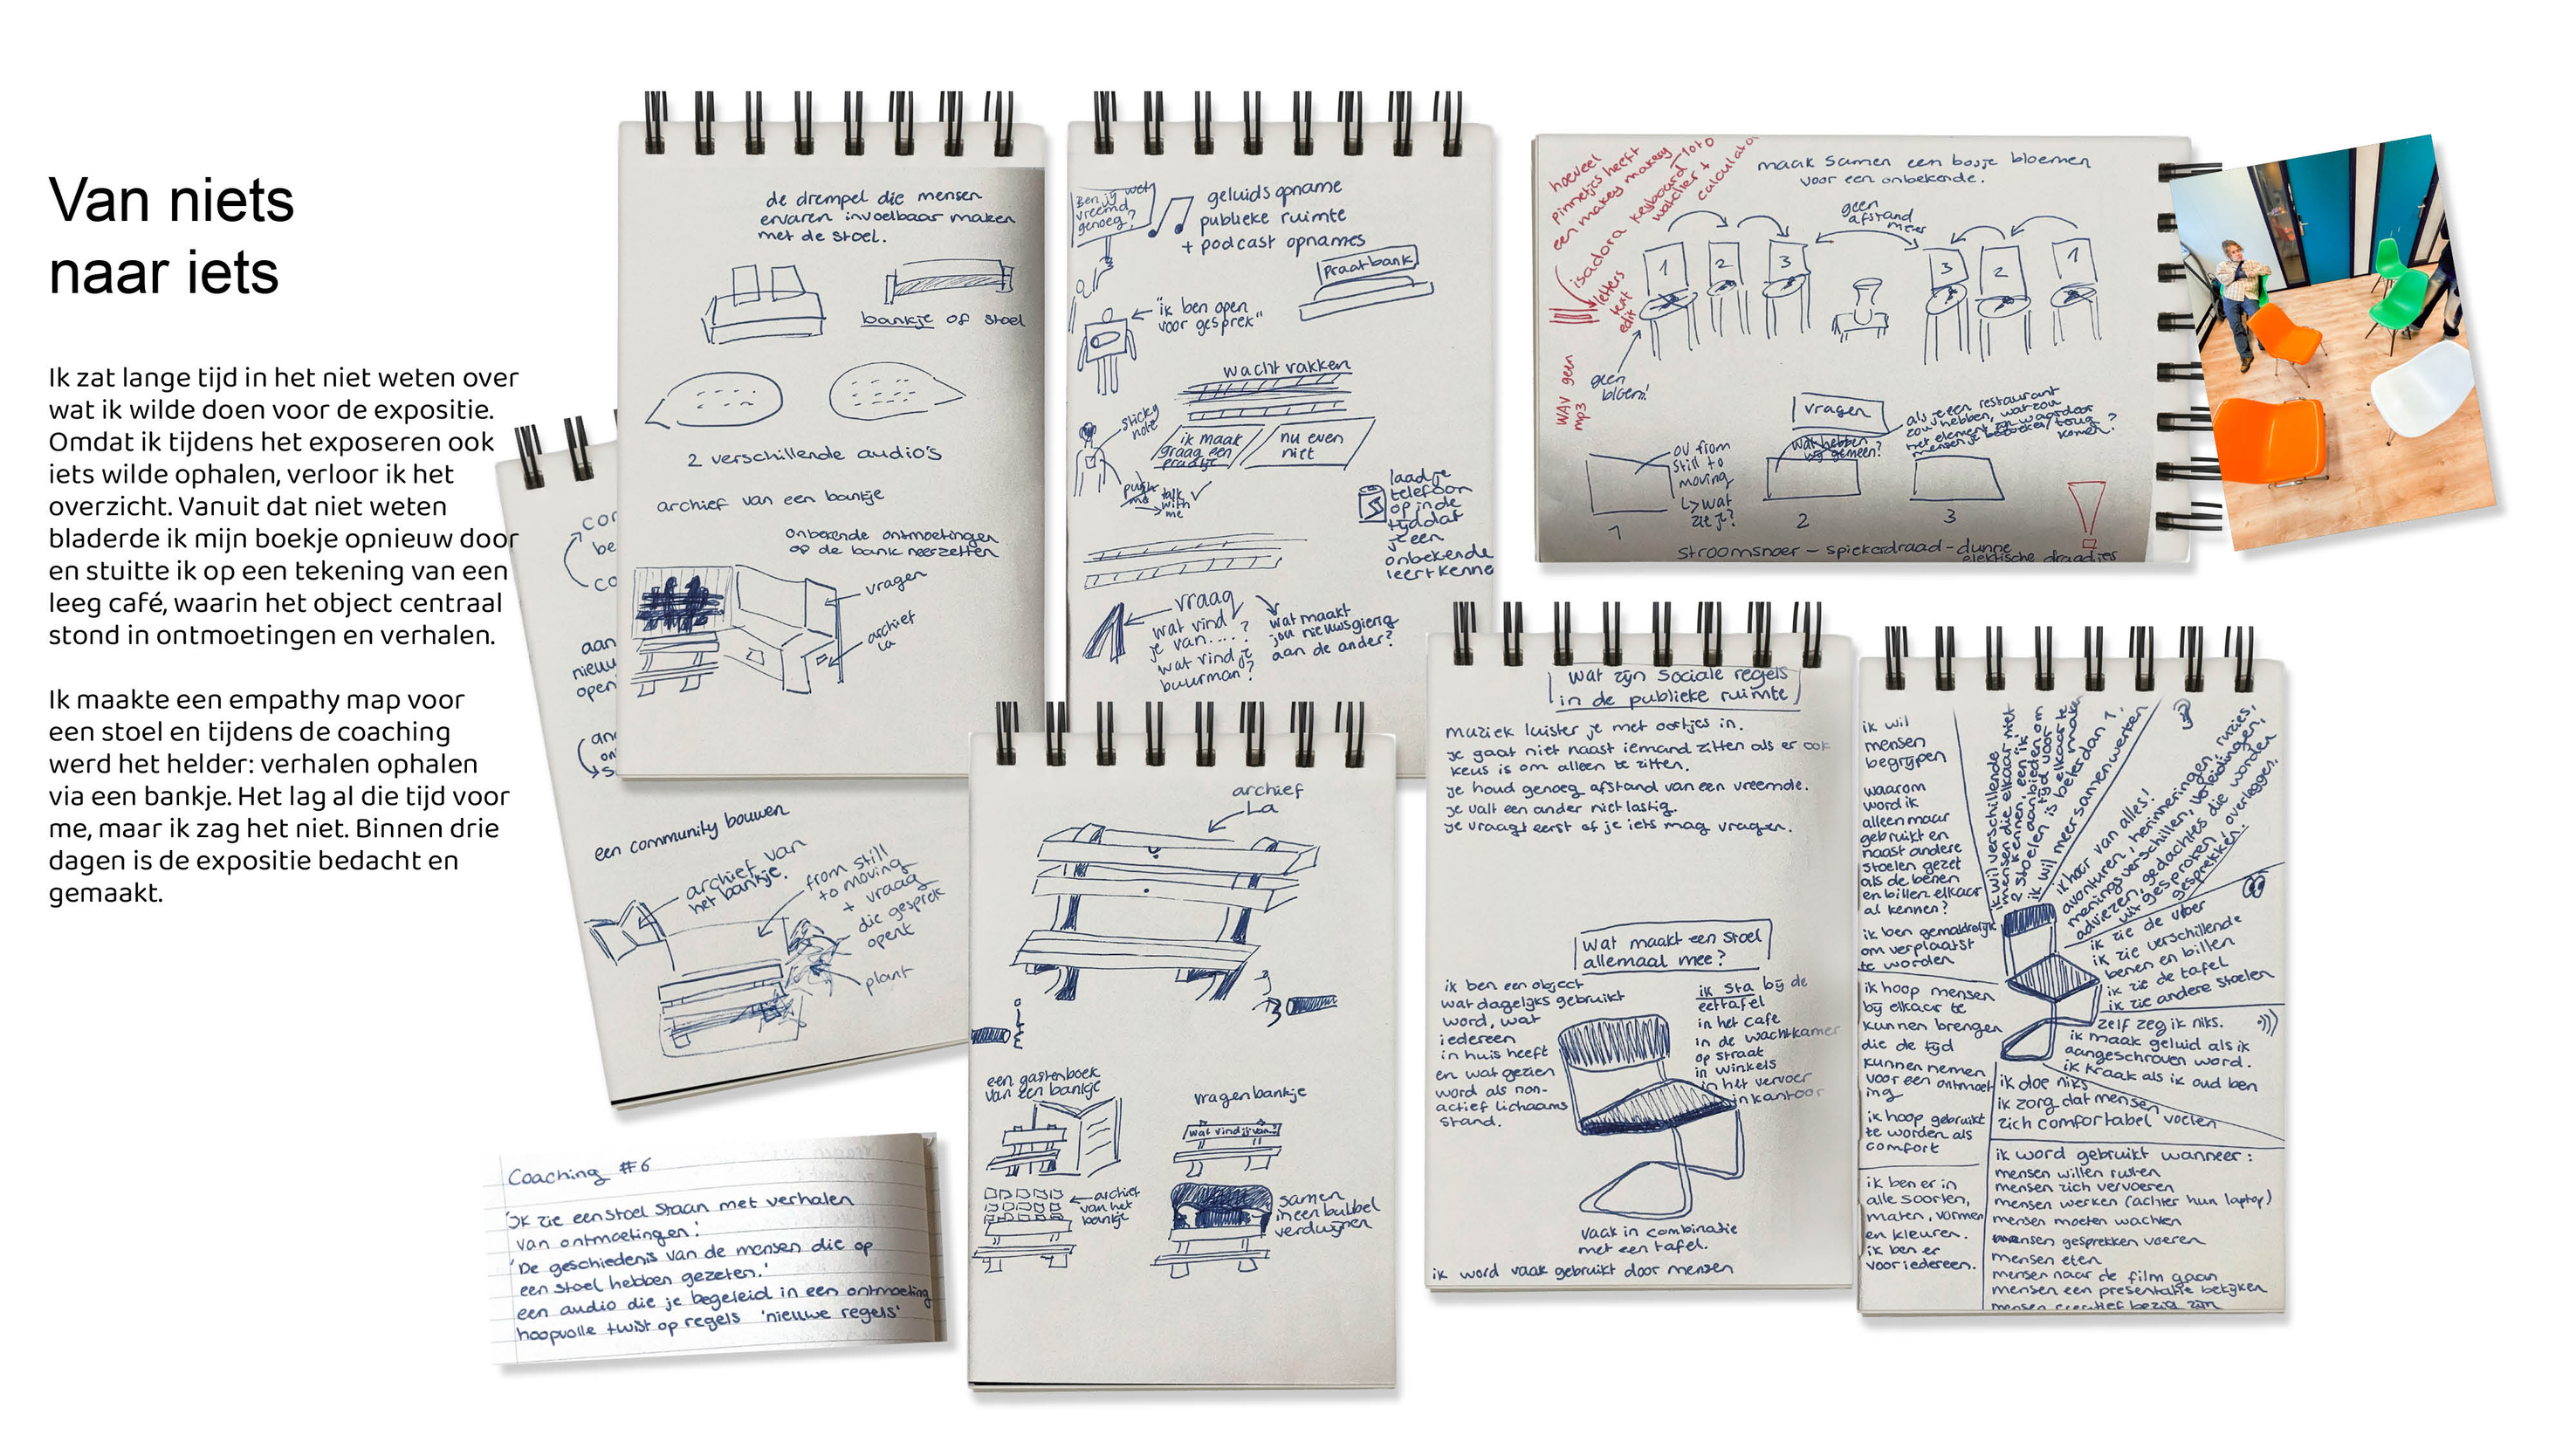 Van niets
naar iets
Ik zat lange tijd in het niet weten over
wat ik wilde doen voor de expositie.
Omdat ik tijdens het exposeren ook
iets wilde ophalen, verloor ik het
overzicht. Vanuit dat niet weten
bladerde ik mijn boekje opnieuw door
en stuitte ik op een tekening van een
leeg café, waarin het object centraal
stond in ontmoetingen en verhalen.
Ik maakte een empathy map voor
een stoel en tijdens de coaching
werd het helder: verhalen ophalen
via een bankje. Het lag al die tijd voor
me, maar ik zag het niet. Binnen drie
dagen is de expositie bedacht en
gemaakt.
een community bouwen
archief van
het bankje.
from still
to moving
+ vraag
die gesprek
opent
plant
de drempel die mensen
ervaren invoelbaar maken
met de stoel.
bankje of stoel
2 verschillende audio's
archief van een bankje
onbekende ontmoetingen
op de bank neerzetten
vragen
archief
la
Ben jij wel
vreemd
genoeg?
geluids opname
publieke ruimte
+ podcast opnames
praatbank
"ik ben open
voor gesprek"
wacht vakken
sticky
note
ik maak
graag een
praatje
nu even
niet
push
me
talk
with
me
laad je
telefoon
op in de
tijd dat
je een
onbekende
leert kennen
vraag
wat vind
je van....?
wat vind je
buurman?
wat maakt
jou nieuwsgierig
aan de ander?
hoeveel
pinnetjes heeft
een makey makey
isadora keyboard
watcher +
calculator
letters
text
edit
WAV geen
mp3
maak samen een bosje bloemen
voor een onbekende.
geen
afstand
meer
1
2
3
3
2
1
geen
bloem!
vragen
wat hebben
wij gemeen?
als je een restaurant
zou hebben, wat zou
het element zijn waardoor
mensen je bezoeken/terug
komen?
ov from
still to
moving
↳ wat
zie je?
1
2
3
stroomsnoer - spiekerdraad - dunne
elektische draadjes
archief
La
een gastenboek
van een bankje
vragenbankje
wat vind jij van..?
archief
van het
bankje
samen
in een bubbel
verdwijnen
Coaching #6
'Ik zie een stoel staan met verhalen
van ontmoetingen.'
'De geschiedenis van de mensen die op
een stoel hebben gezeten.'
een audio die je begeleid in een ontmoeting
hoopvolle twist op regels 'nieuwe regels'
wat zijn sociale regels
in de publieke ruimte
muziek luister je met oortjes in.
je gaat niet naast iemand zitten als er ook
keus is om alleen te zitten.
je houd genoeg afstand van een vreemde.
je valt een ander niet lastig.
je vraagt eerst of je iets mag vragen.
wat maakt een stoel
allemaal mee?
ik ben een object
wat dagelijks gebruikt
word, wat
iedereen
in huis heeft
en wat gezien
word als non-
actief lichaams
stand.
ik sta bij de
eettafel
in het cafe
in de wachtkamer
op straat
in winkels
in het vervoer
in kantoor
vaak in combinatie
met een tafel.
ik word vaak gebruikt door mensen
ik wil
mensen
begrijpen
waarom
word ik
alleen maar
gebruikt en
naast andere
stoelen gezet
als de benen
en billen elkaar
al kennen?
ik ben gemakkelijk
om verplaatst
te worden
ik hoop mensen
bij elkaar te
kunnen brengen
die de tijd
kunnen nemen
voor een ontmoet
ing
ik hoop gebruikt
te worden als
comfort
ik ben er in
alle soorten,
maten, vormen
en kleuren.
ik ben er
voor iedereen.
ik wil verschillende
mensen die elkaar niet
kennen, een
2 stoelen is beter dan 1.
ik wil meer samenwerken
ik hoor van alles!
avonturen, herinneringen, ruzies,
meningsverschillen,
adviezen, gedachtes die worden
uit gesproken, overleggen.
gesprekken.
ik zie de vloer
ik zie verschillende
benen en billen
ik zie de tafel
ik zie andere stoelen
zelf zeg ik niks.
ik maak geluid als ik
aangeschroven word.
ik kraak als ik oud ben
ik doe niks
ik zorg dat mensen
zich comfortabel voelen
ik word gebruikt wanneer:
mensen willen rusten
mensen zich vervoeren
mensen werken (achter hun laptop)
mensen moeten wachten
mensen gesprekken voeren
mensen eten
mensen naar de film gaan
mensen een presentatie bekijken
mensen creatief bezig zijn